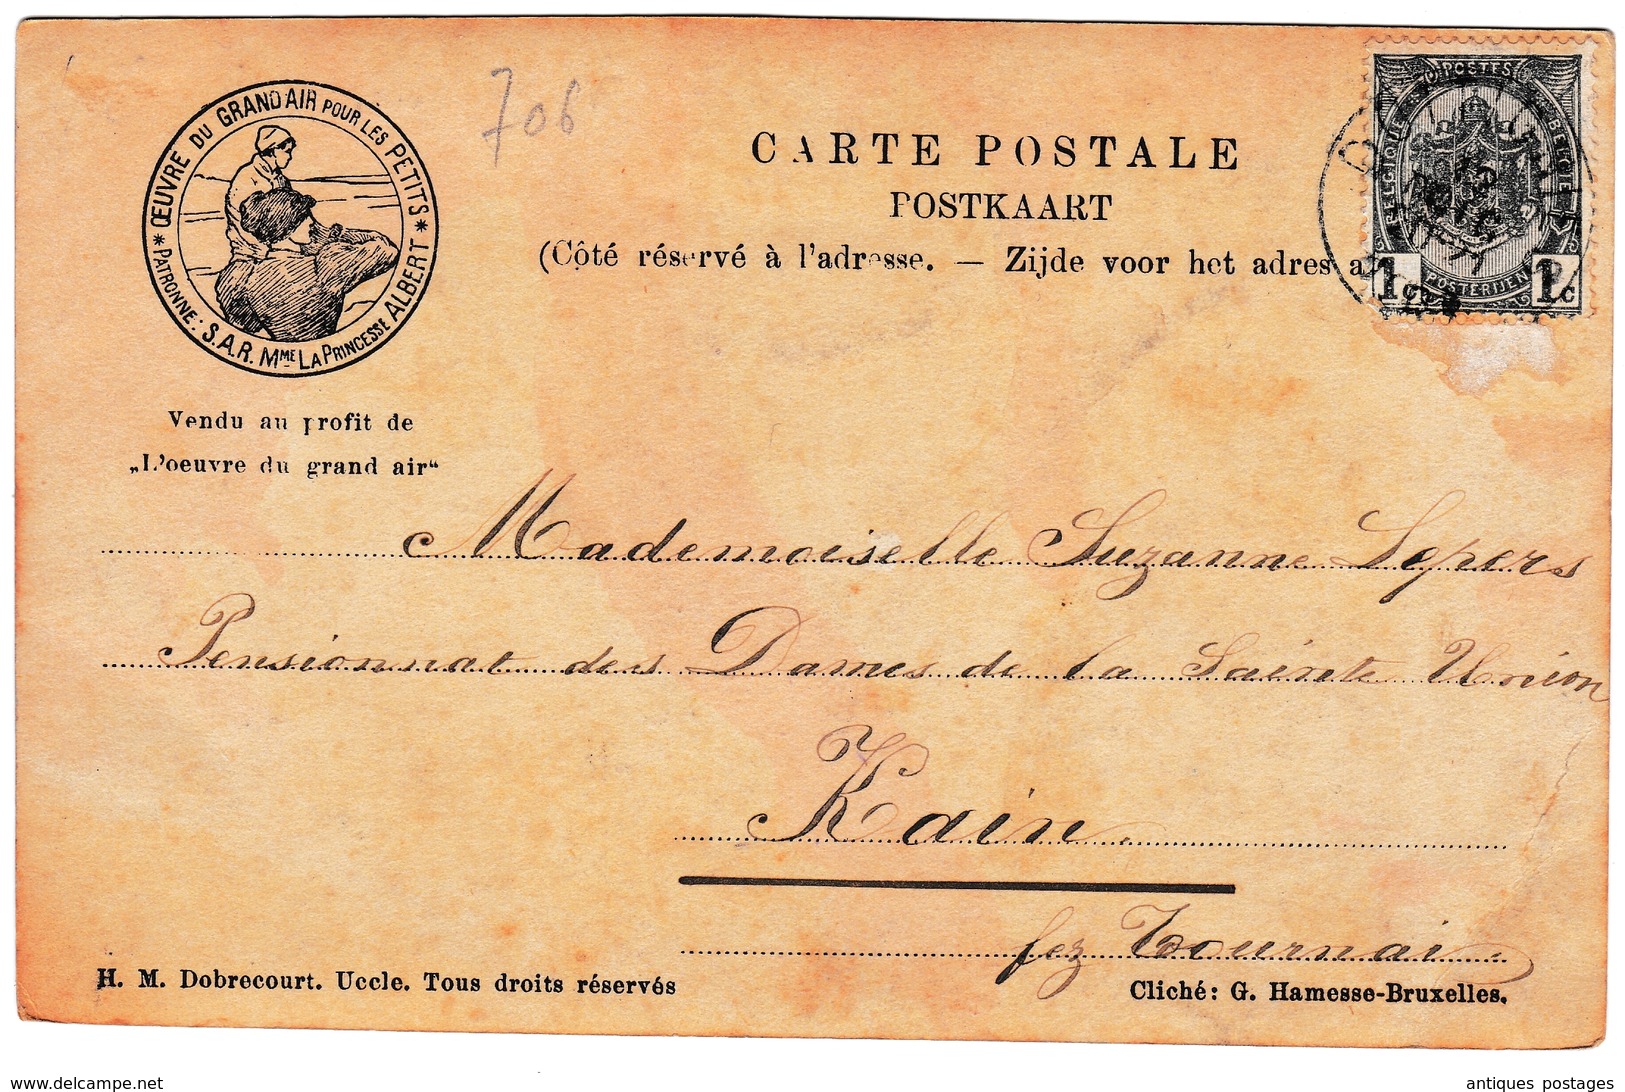 ŒUVRE DU GRAND AIR POUR LES PETITS
* PATRONNE: S.A.R. MME LA PRINCESSE ALBERT *
706
CARTE POSTALE
POSTKAART
(Côté réservé à l'adresse. — Zijde voor het adres a
POSTES
BELGIQUE
BELGIË
POSTERIJEN
1c 1c
Vendu au profit de
„L'oeuvre du grand air“
Mademoiselle Suzanne Lepers
Pensionnat des Dames de la Sainte Union
Kain
fez Tournai
H. M. Dobrecourt. Uccle. Tous droits réservés
Cliché: G. Hamesse-Bruxelles.
www.delcampe.net
antiques postages